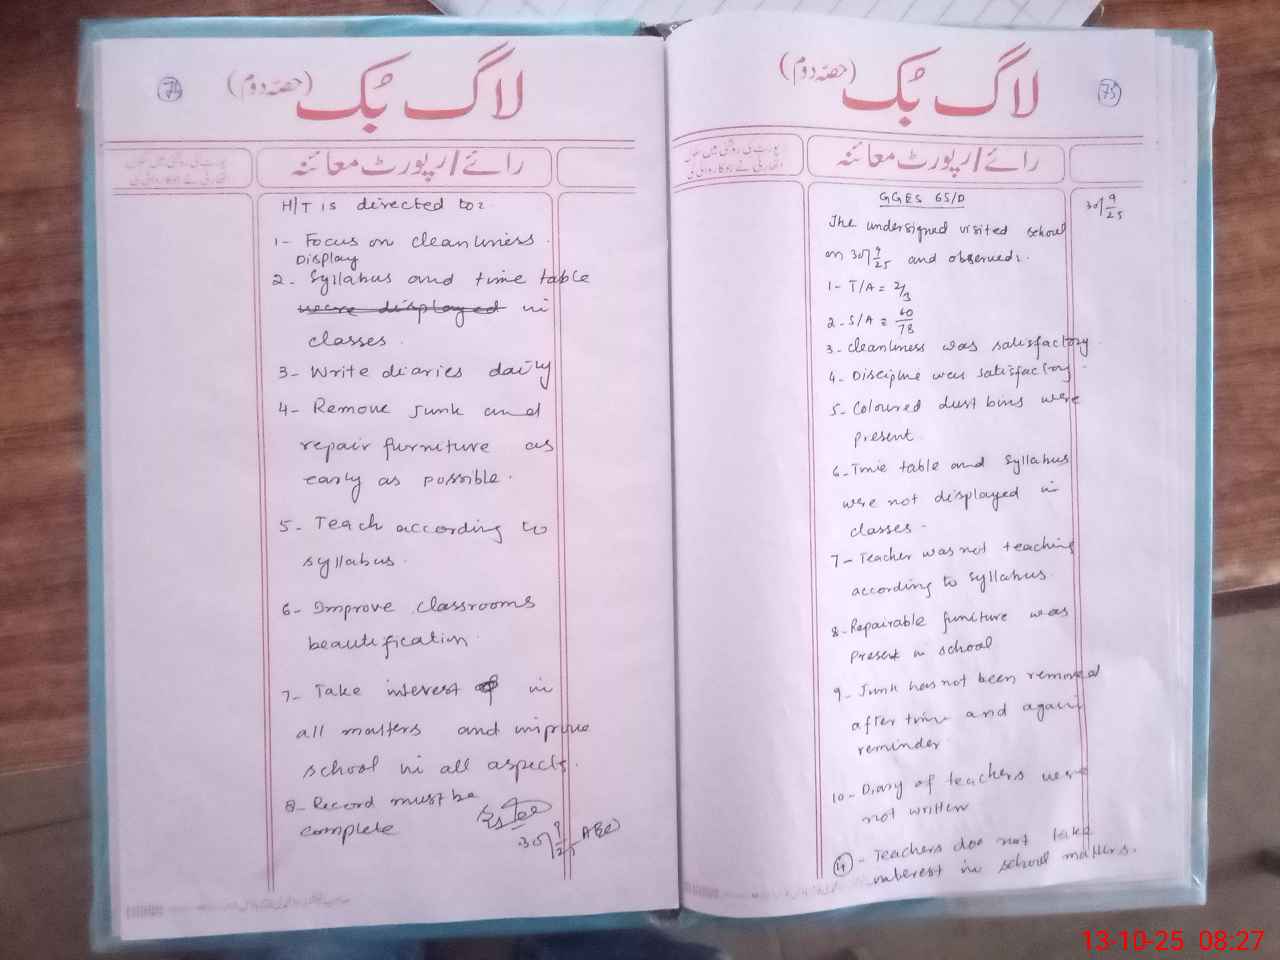 74
لاگ بُک (حصّہ دوم)
رائے/رپورٹ معائنہ
H/T is directed to:
1- Focus on cleanliness.
Display
2- Syllabus and time table
were displayed in
classes.
3- Write diaries daily
4- Remove junk and
repair furniture as
early as possible.
5- Teach according to
syllabus.
6- Improve classrooms
beautification.
7- Take interest in
all matters and improve
school in all aspects.
8- Record must be
complete
30/9/25 AEO
75
لاگ بُک (حصّہ دوم)
رائے/رپورٹ معائنہ
GGES 65/D
30/9/25
The undersigned visited school
on 30/9/25 and observed:
1- T/A = 2/3
2- S/A = 60/78
3- cleanliness was satisfactory
4- Discipline was satisfactory.
5- Coloured dust bins were
present.
6- Time table and syllabus
were not displayed in
classes.
7- Teacher was not teaching
according to syllabus.
8- Repairable furniture was
present in school
9- Junk has not been removed
after time and again
reminder.
10- Diary of teachers were
not written
11- Teachers doe not take
interest in school matters.
13-10-25 08:27